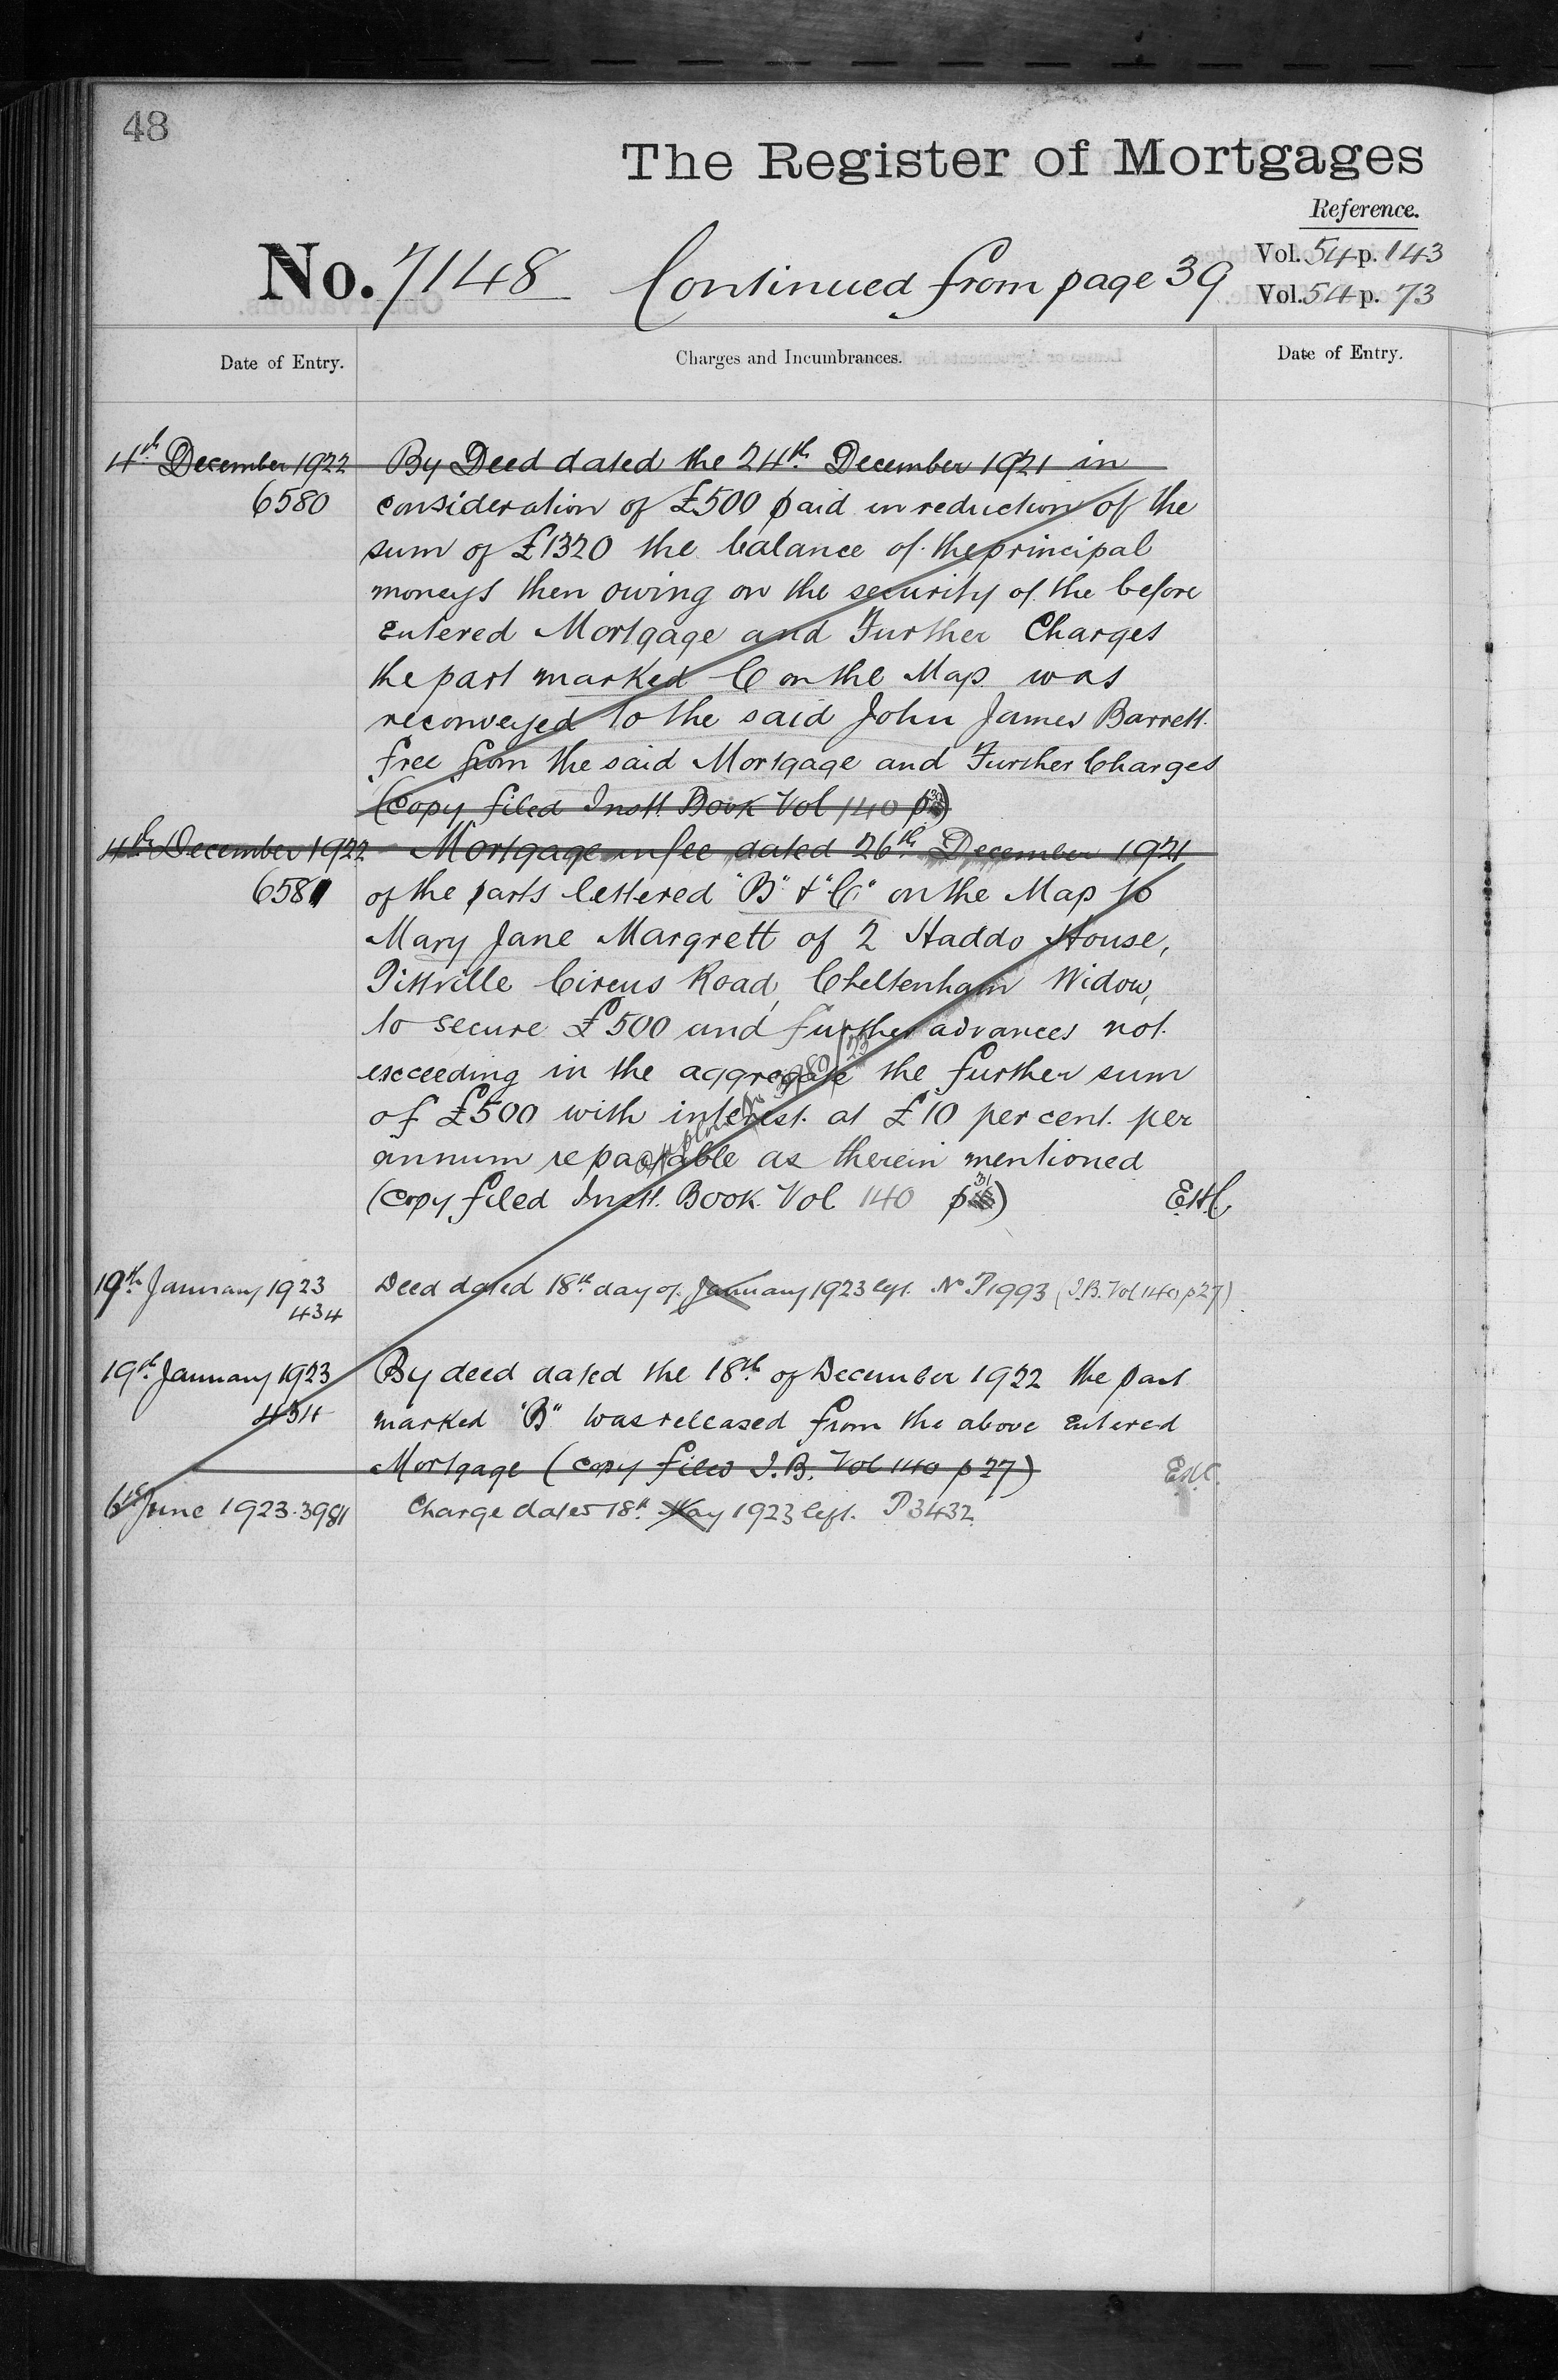 48
The Register of Mortgages
Reference.
No. 7148 Continued from page 39
Vol. 54 p. 143
Vol. 54 p. 73
Date of Entry.
Charges and Incumbrances.
Date of Entry.
4th December 1922 By Deed dated the 24th December 1921 in
6580 consideration of £500 paid in reduction of the
sum of £1320 the balance of the principal
moneys then owing on the security of the before
entered Mortgage and Further Charges
the part marked C on the Map was
reconveyed to the said John James Barrett
free from the said Mortgage and Further Charges
(Copy filed Instt. Book Vol 140 p 30)
4th December 1922 Mortgage in fee dated 26th December 1921
6581 of the parts lettered "B" & "C" on the Map to
Mary Jane Margrett of 2 Haddo House,
Pittville Circus Road, Cheltenham Widow,
to secure £500 and further advances not
exceeding in the aggregate the further sum
of £500 with interest at £10 per cent. per
annum repayable as therein mentioned
(Copy filed Instt. Book Vol 140 p 31) EHC
3980/23
19th January 1923 Deed dated 18th day of January 1923 left. No P1993 (I.B. Vol 140 p27)
434
19th January 1923 By deed dated the 18th of December 1922 the part
434 marked "B" was released from the above entered
Mortgage (Copy filed I.B. Vol 140 p 27) EHC.
6th June 1923. 3981 Charge dated 18th May 1923 left. P3432